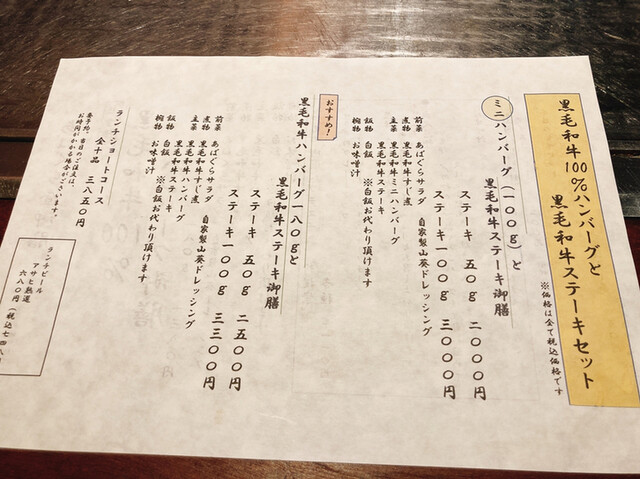 黒毛和牛100%ハンバーグと
黒毛和牛ステーキセット
※価格は全て税込価格です
ミニハンバーグ(一〇〇g)と
黒毛和牛ステーキ御膳
ステーキ 五〇g 二〇〇〇円
ステーキ一〇〇g 三〇〇〇円
前菜 あばぐらサラダ 自家製山葵ドレッシング
煮物 黒毛和牛すじ煮
主菜 黒毛和牛ミニハンバーグ
黒毛和牛ステーキ
飯物 白飯 ※白飯お代わり頂けます
椀物 お味噌汁
おすすめ!
黒毛和牛ハンバーグ一八〇gと
黒毛和牛ステーキ御膳
ステーキ 五〇g 二五〇〇円
ステーキ一〇〇g 三三〇〇円
前菜 あばぐらサラダ 自家製山葵ドレッシング
煮物 黒毛和牛すじ煮
主菜 黒毛和牛ハンバーグ
黒毛和牛ステーキ
飯物 白飯 ※白飯お代わり頂けます
椀物 お味噌汁
ランチショートコース
全十品 三八五〇円
要予約、当日のご注文は、
お時間がかかる場合がございます。
ランチビール
アサヒ熟選
六八〇円(税込七四八